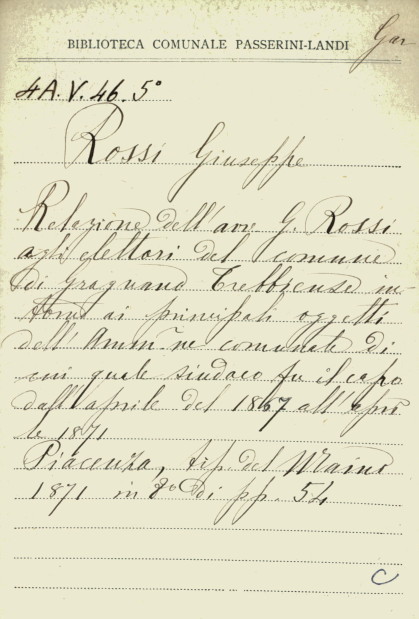 BIBLIOTECA COMUNALE PASSERINI-LANDI
Gar
4A.V.46.5°
Rossi Giuseppe
Relazione dell'avv. G. Rossi
agli elettori del comune
di gragnano Trebbiense in-
torno ai principali oggetti
dell'Amm.ne comunale di
cui quale sindaco fu il capo
dall'aprile del 1867 all'apri
le 1871
Piacenza, tip. del Maino
1871 in 8° di pp. 54
C